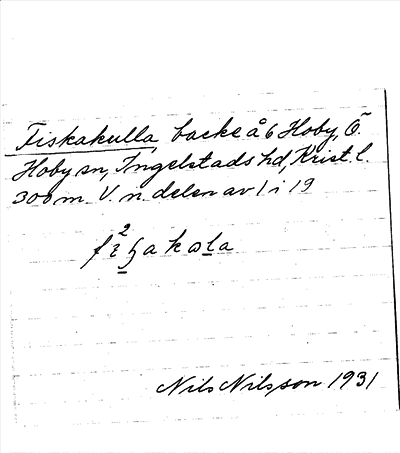 Fiskakulla, backe å 6 Hoby, Ö.
Hoby sn, Ingelstads hd, Krist. l.
300 m. V. n. delen av 1 i 19
Nils Nilsson 1931